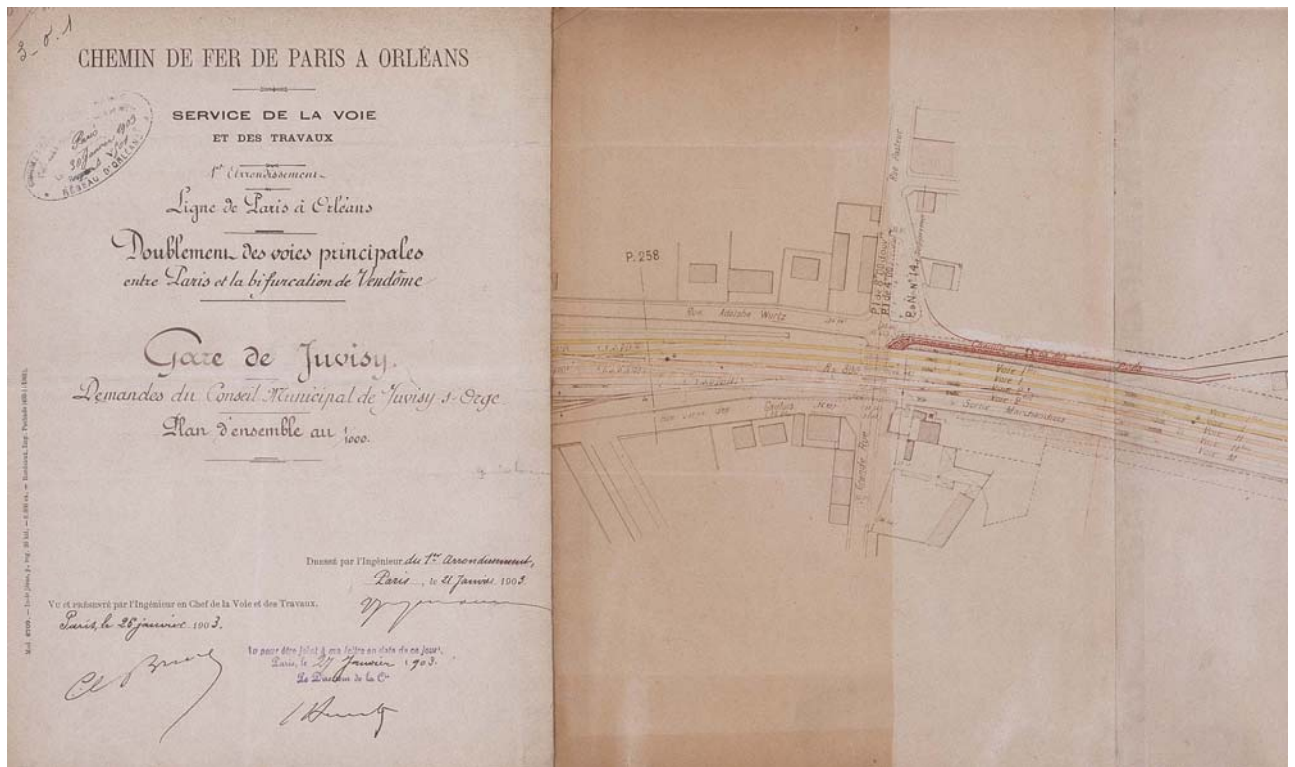 3-0.1
CHEMIN DE FER DE PARIS A ORLÉANS
SERVICE DE LA VOIE
ET DES TRAVAUX
Paris
30 Janvier 1903
RÉSEAU D'ORLÉANS
1er Arrondissement
Ligne de Paris à Orléans
Doublement des voies principales
entre Paris et la bifurcation de Vendôme
Gare de Juvisy.
Demandes du Conseil Municipal de Juvisy s-Orge
Plan d'ensemble au 1/1000.
Dressé par l'Ingénieur du 1er Arrondissement,
Paris, le 21 Janvier 1903.
Vu et présenté par l'Ingénieur en Chef de la Voie et des Travaux.
Paris, le 26 janvier 1903.
Vu pour être joint à ma lettre en date de ce jour.
Paris, le 27 Janvier 1903.
Le Directeur de la Cie
P. 258
Rue Adolphe Wurtz
Rue Pasteur
P.I de 8m
P.I de 4m
P.à N. N° 14
Voie 1
Voie 2
Grande Rue
Voie
Voie
Voie
Voie